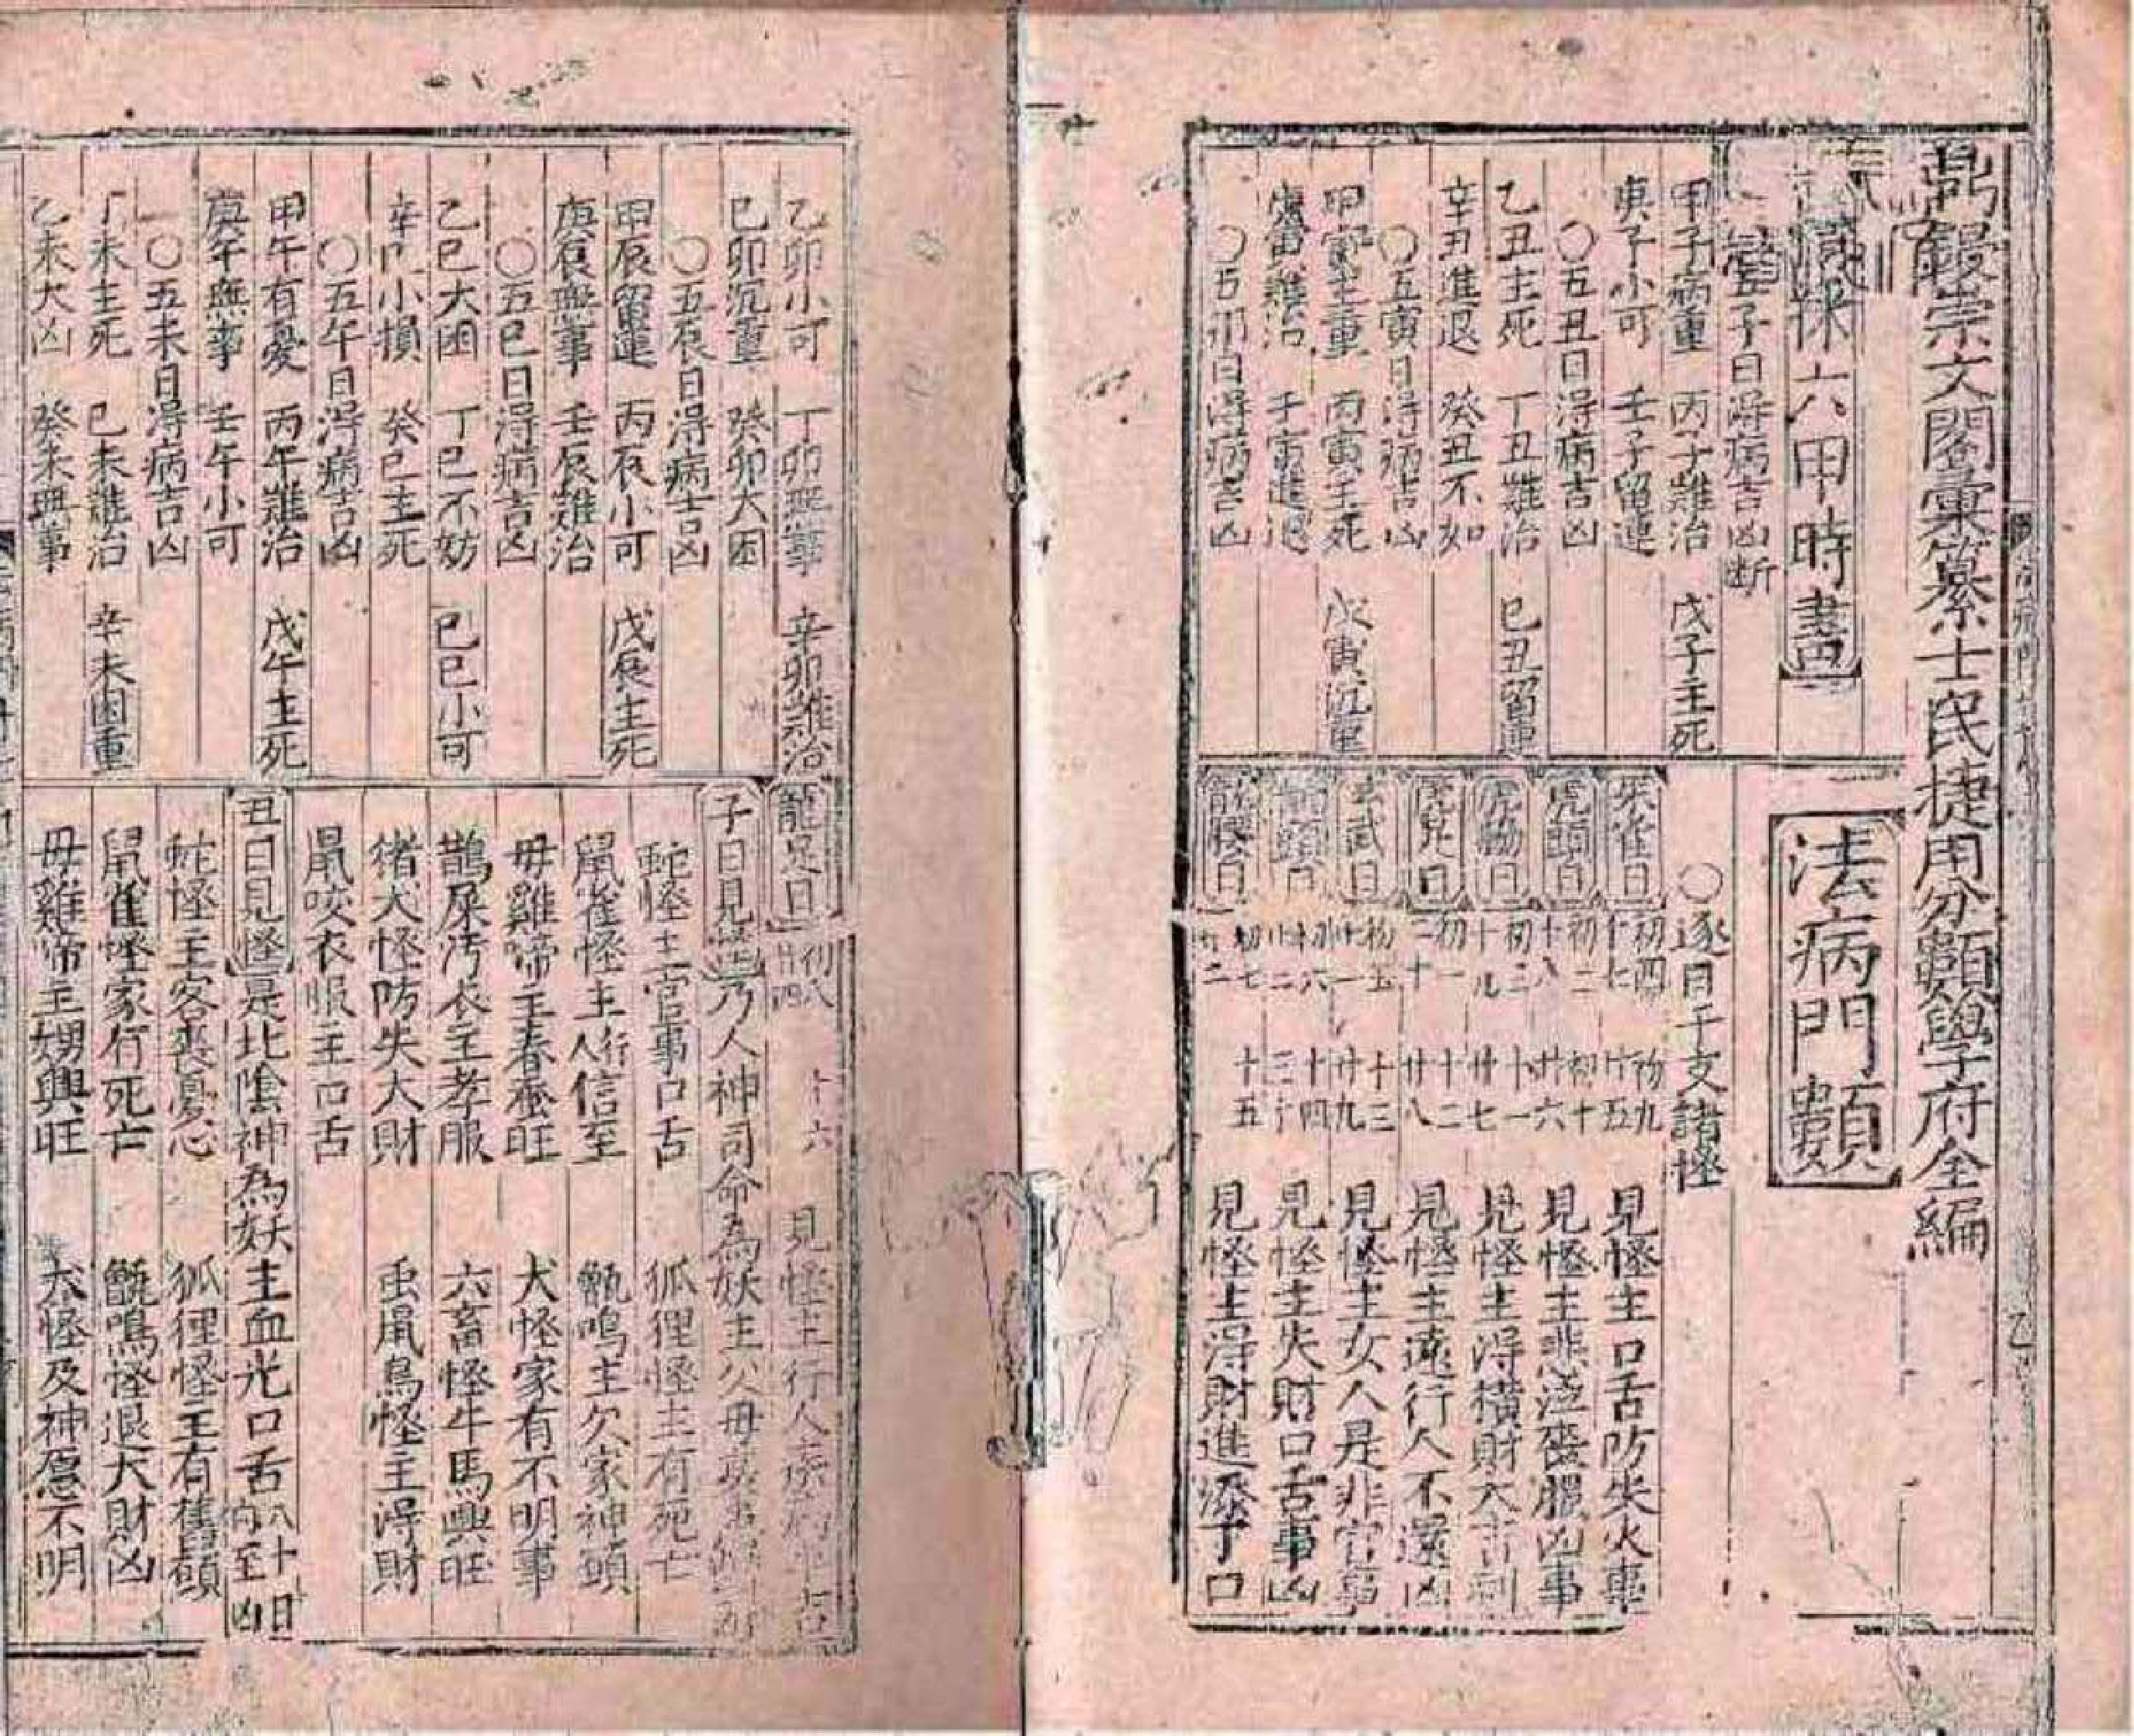 鼎鋟崇文閣彙纂士民捷用分類學府全編
法病門類
六甲時書
五子日得病吉凶断
甲子病重 丙子難治 戊子主死
庚子小可 壬子留連
〇五丑日得病吉凶
乙丑主死 丁丑難治 己丑留連
辛丑進退 癸丑不如
〇五寅日得病吉凶
甲寅主重 丙寅主死 戊寅沉重
庚寅難治 壬寅進退
〇五卯日得病吉凶
〇逐日干支諸怪
朱雀日 初四 十七 初九 廿五 見怪主口舌防失火事
虎頭日 初二 十八 初十 廿六 見怪主悲泣喪服凶事
虎脇日 初三 十九 十一 廿七 見怪主得橫財大吉利
虎足日 初一 二十 十二 廿八 見怪主遠行人不還凶
玄武日 初五 廿一 十三 廿九 見怪主女人是非官事
龍頭日 初六 廿二 十四 三十 見怪主失財口舌事凶
龍脇日 初七 十五 見怪主得財進添子口
乙卯小可 丁卯無事 辛卯難治
己卯沉重 癸卯大困
〇五辰日得病吉凶
甲辰留連 丙辰小可 戊辰主死
庚辰無事 壬辰難治
〇五巳日得病吉凶
乙巳大困 丁巳不妨 己巳小可
辛巳小損 癸巳主死
〇五午日得病吉凶
甲午有憂 丙午難治 戊午主死
庚午無事 壬午小可
〇五未日得病吉凶
丁未主死 己未難治 辛未困重
乙未大凶 癸未無事
龍足日 初八 廿四 十六 見怪主行人
子日見怪 乃人神司命為妖主父母
蛇怪主官事口舌 狐狸怪主有死亡
鼠雀怪主行人信至 甑鳴主欠家神願
毋雞啼主春蚕旺 犬怪家有不明事
鵲屎汚衣主孝服 六畜怪牛馬興旺
猪犬怪防失大財 虫鼠鳥怪主得財
鼠咬衣服主口舌
丑日見怪 是北陰神為妖主血光口舌六十日內至凶
蛇怪主客喪憂心 狐狸怪主有舊願
鼠雀怪家有死亡 甑鳴怪退大財凶
毋雞啼主甥興旺 犬怪及神愿不明